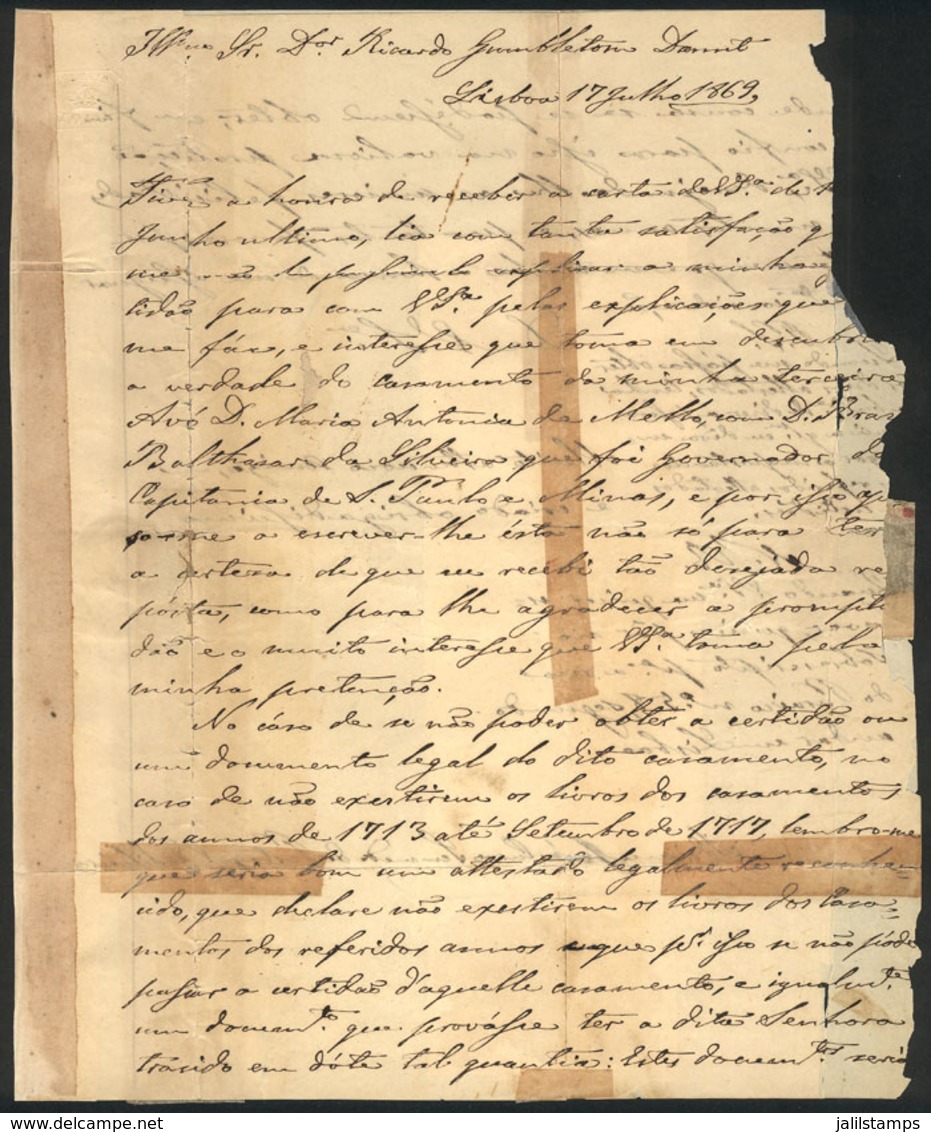 Illmo. Sr. Dor. Ricardo Gumbletom Daunt
Lisboa 17 Julho 1869,
Tive a honra de receber a carta de VSª. de
Junho ultimo, lia com tanta satisfação q
me não é explicar a minha
tidão para com VSª. pelas explicações que
me fáz, e interesse que toma em descubri
a verdade do casamento da minha terceira
Avó D. Maria Antonia de Mello, com D. Braz
Balthasar da Silveira que foi Governador da
Capitania de S. Paulo e Minas, e por isso ap
so-me a escrever-lhe ésta não só para ter
a certeza de que eu recebi tão desejada re
pósta, como para lhe agradecer a prompti
dão e o muito interesse que VSª. toma pela
minha pretenção.
No cáso de se não poder obter a certidão ou
um documento legal do dito casamento, no
caso de não exestirem os livros dos casamentos
dos annos de 1713 até Setembro de 1717, lembro-me
que seria bom um attestado legalmente reconhe=
cido, que declare não exestirem os livros dos Casa=
mentos dos referidos annos e que pr. isso se não póde
passar a certidão d'aquelle casamento, e igualmte.
um documto. que provásse ter a dita Senhora
trasido em dóte tal quantia: Estes documtos. seria
jalilstamps